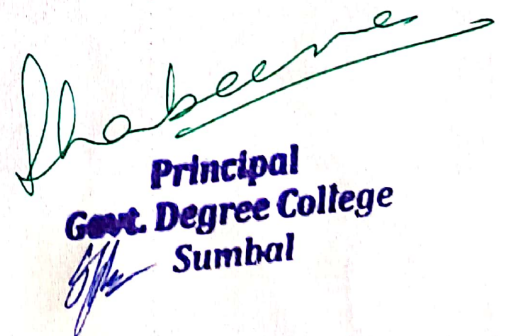 Shabeena
Principal
Govt. Degree College
Sumbal